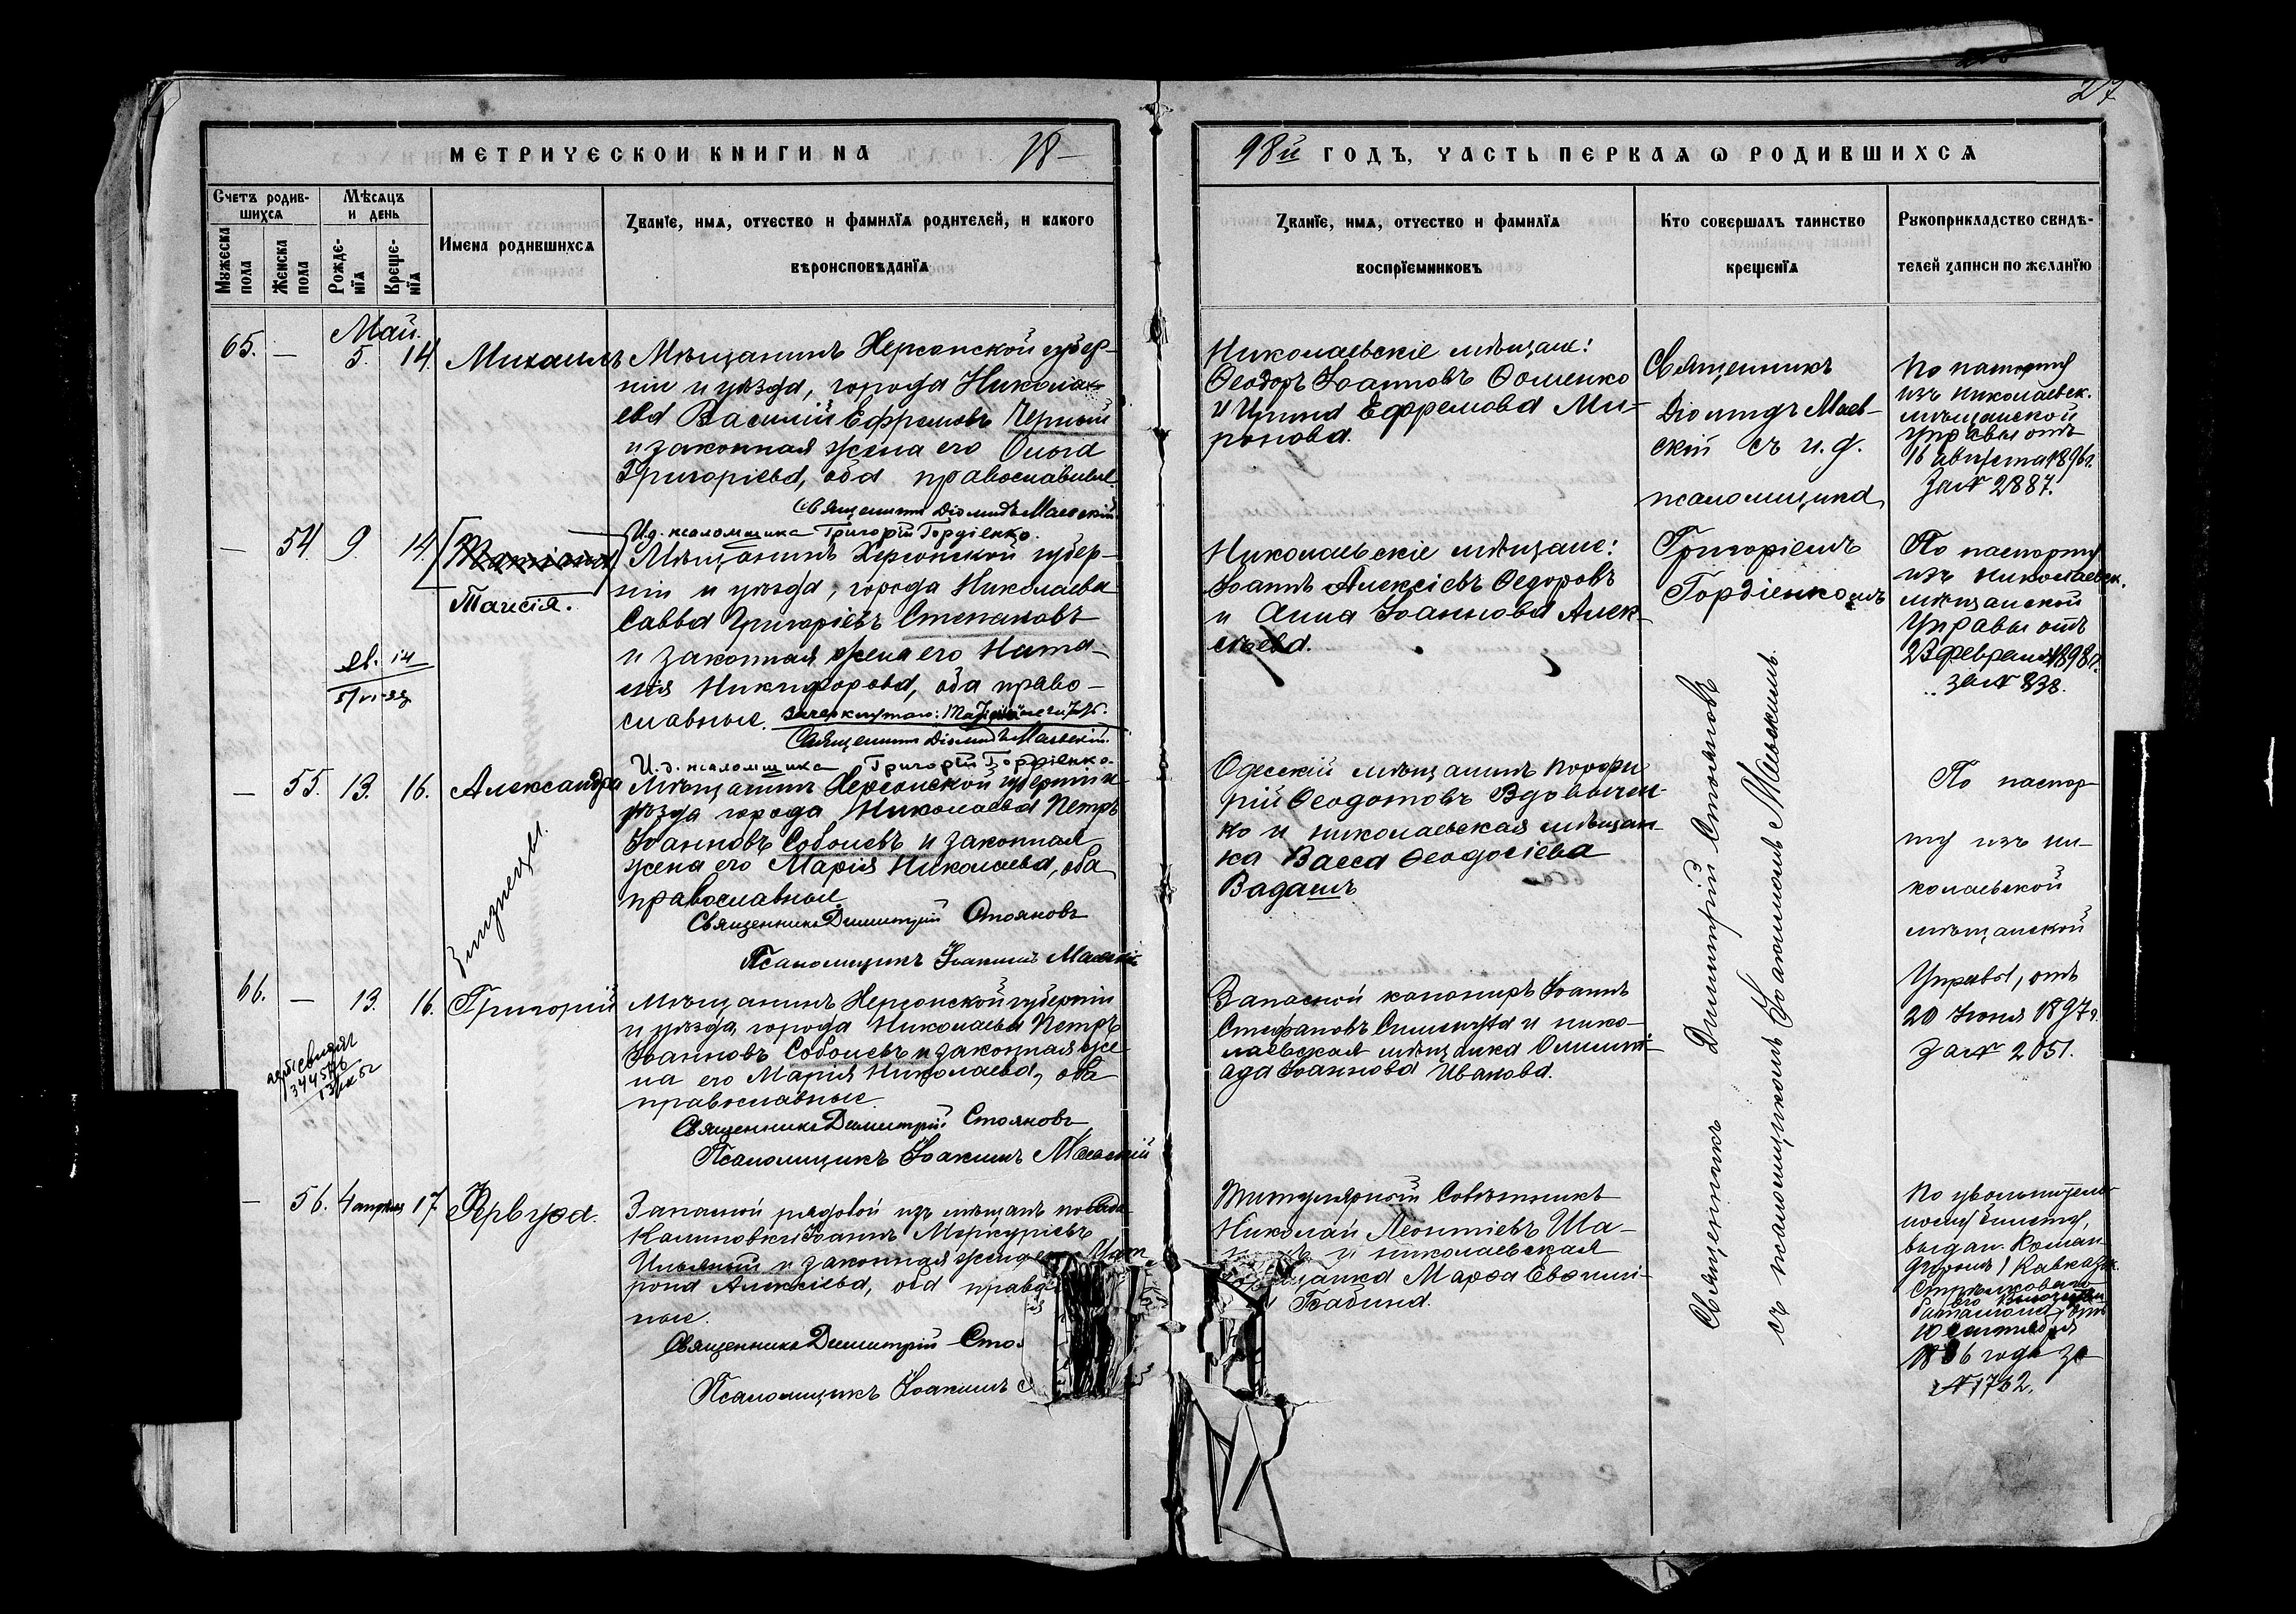 27
МЕТРИЧЕСКОЙ КНИГИ НА 18
98й ГОДЪ, ЧАСТЬ ПЕРВАЯ Ѡ РОДИВШИХСЯ
Счетъ родив-
шихся
Мужеска пола
Женска пола
Мѣсяцъ
и день
Рожде-
нїя
Креще-
нїя
Имена родившихся
Званїе, имя, отчество и фамилїя родителей, и какого
вѣроисповѣданїя
Званїе, имя, отчество и фамилїя
воспрїемниковъ
Кто совершалъ таинство
крещенїя
Рукоприкладство свидѣ-
телей записи по желанїю
Май.
65. — 5. 14. Михаилъ
Мѣщанинъ Херсонской губер-
ніи и уѣзда, города Никола-
ева Василій Ефремовъ Черный
и законная жена его Ольга
Григоріева, оба православные.
Священникъ Діомидъ Маевскій
И.д. псаломщика Григорій Гордіенко.
Николаевскіе мѣщане:
Ѳеодоръ Іоанновъ Ѳоменко
и Ирина Ефремова Ми-
ронова.
Священникъ
Діомидъ Маев-
скій съ и. д.
псаломщика
Григоріемъ
Гордіенкомъ
По паспорту
изъ николаевск.
мѣщанской
управы отъ
16 августа 1896 г.
За № 2887.
— 54. 9. 14.
Таисія.
Мѣщанинъ Херсонской губер-
ніи и уѣзда, города Николаева
Савва Григоріевъ Степановъ
и законная жена его Ната-
лія Никифорова, оба право-
славные. Зачеркнутому:
Священникъ Діомидъ Маевскій.
И. д. псаломщика Григорій Гордіенко.
Николаевскіе мѣщане:
Іоаннъ Алексіевъ Ѳедоровъ
и Анна Іоаннова Алек-
сѣева.
По паспорту
изъ николаевск.
мѣщанской
Управы отъ
23 февраля 1898 г.
за № 838.
— 55. 13. 16. Александра
Близнецы.
Мѣщанинъ Херсонской губерніи и
уѣзда города Николаева Петръ
Іоанновъ Соболевъ и законная
жена его Марія Николаева, оба
православные.
Священникъ Димитрий Стояновъ
Псаломщикъ Іоакимъ Маевскій
Одесскій мѣщанинъ Порфи
рій Ѳеодотовъ Вдовичен-
ко и николаевская мѣщан-
ка Васса Ѳеодосіева
Вадашъ
Священникъ Димитрій Стояновъ
съ псаломщикомъ Іоакимомъ Маевскимъ.
По паспор
ту изъ ни-
колаевской
мѣщанской
Управы, отъ
20 Іюня 1897 г.
За № 2051.
66. — 13. 16. Григорий
Мѣщанинъ Херсонской губерніи
и уѣзда, города Николаева Петръ
Іоанновъ Соболевъ и законная же
на его Марія Николаева, оба
православные.
Священникъ Димитрий Стояновъ
Псаломщикъ Іоакимъ Маевскій
Запасной канониръ Іоаннъ
Стефановъ и нико-
лаевская мѣщанка Олимпі-
ада Іоаннова Иванова.
— 56. 4 апрѣля 17. Фервуѳа.
Запасной рядовой изъ мѣщанъ
Калиновки Іоаннъ Меркуріевъ
Ильяный и законная жена его Мат
рона Алексіева, оба право
ные.
Священникъ Димитрий Сто
Псаломщикъ Іоакимъ
Титулярный Совѣтникъ
Николай Леонтіевъ Ша-
и николаевская
щанка Марѳа Евѳимі-
Бабина.
По увольнитель-
ному билету,
выдан. Коман-
диромъ 1 Кавказск.
Стрѣлковаго
Баталіона, отъ
10 сентября
года за
№ 1762.